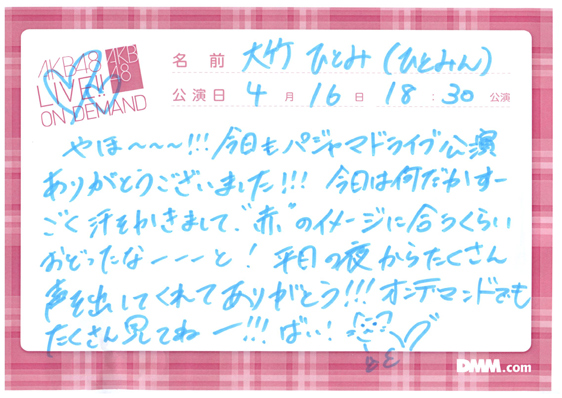 AKB48
LIVE!!
ON DEMAND
AKB
48
名前 大竹 ひとみ (ひとみん)
公演日 4月16日 18:30 公演
やほ〜〜〜!!! 今日もパジャマドライブ公演
ありがとうございました!!! 今日は何だかすー
ごく汗をかきまして、"赤"のイメージに合うくらい
おどったなーーーと! 平日の夜からたくさん
声を出してくれてありがとう!!! オンデマンドでも
たくさん見てねー!!! ばい!
DMM.com